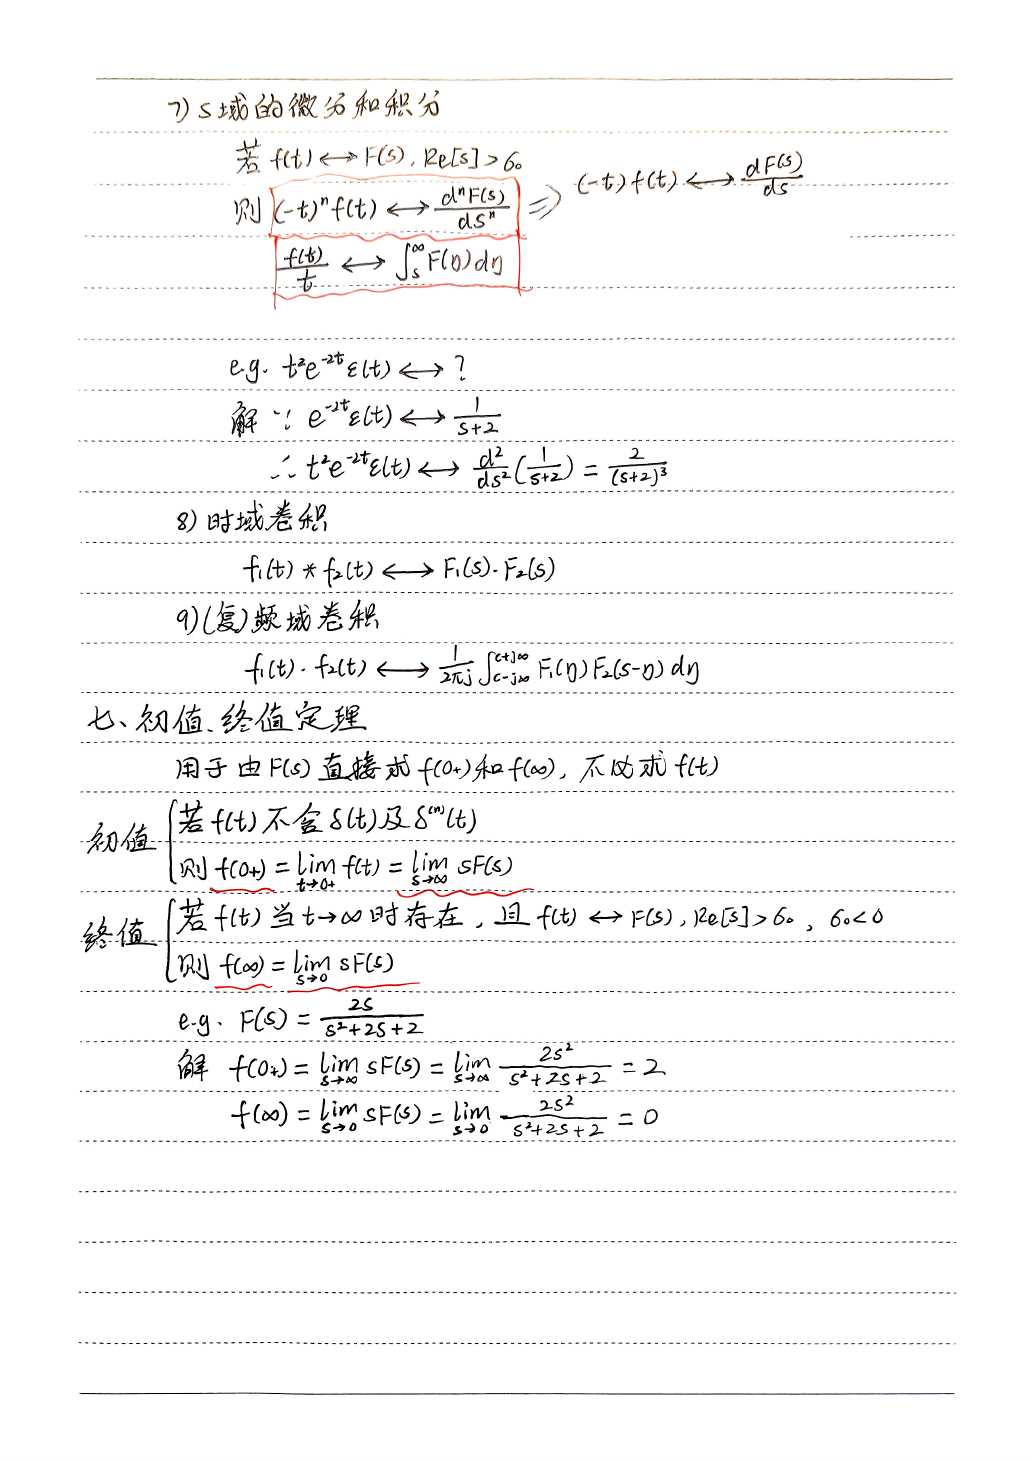 7) S域的微分和积分
若 f(t) ↔ F(s), Re[s] > σ₀
则 (-t)ⁿf(t) ↔ dⁿF(s)/dsⁿ ⇒ (-t)f(t) ↔ dF(s)/ds
f(t)/t ↔ ∫ₛ^∞ F(η)dη
e.g. t²e^(-2t)ε(t) ↔ ?
解 ∵ e^(-2t)ε(t) ↔ 1/(s+2)
∴ t²e^(-2t)ε(t) ↔ d²/ds² (1/(s+2)) = 2/(s+2)³
8) 时域卷积
f₁(t) * f₂(t) ↔ F₁(s)·F₂(s)
9) (复)频域卷积
f₁(t)·f₂(t) ↔ 1/(2πj) ∫_(c-j∞)^(c+j∞) F₁(η)F₂(s-η)dη
七、初值、终值定理
用于由F(s)直接求f(0+)和f(∞), 不必求f(t)
初值 { 若f(t)不含δ(t)及δ⁽ⁿ⁾(t)
则 f(0+) = lim_(t→0+) f(t) = lim_(s→∞) sF(s)
终值 { 若f(t)当t→∞时存在, 且 f(t) ↔ F(s), Re[s] > σ₀, σ₀<0
则 f(∞) = lim_(s→0) sF(s)
e.g. F(s) = 2s/(s²+2s+2)
解 f(0+) = lim_(s→∞) sF(s) = lim_(s→∞) 2s²/(s²+2s+2) = 2
f(∞) = lim_(s→0) sF(s) = lim_(s→0) 2s²/(s²+2s+2) = 0